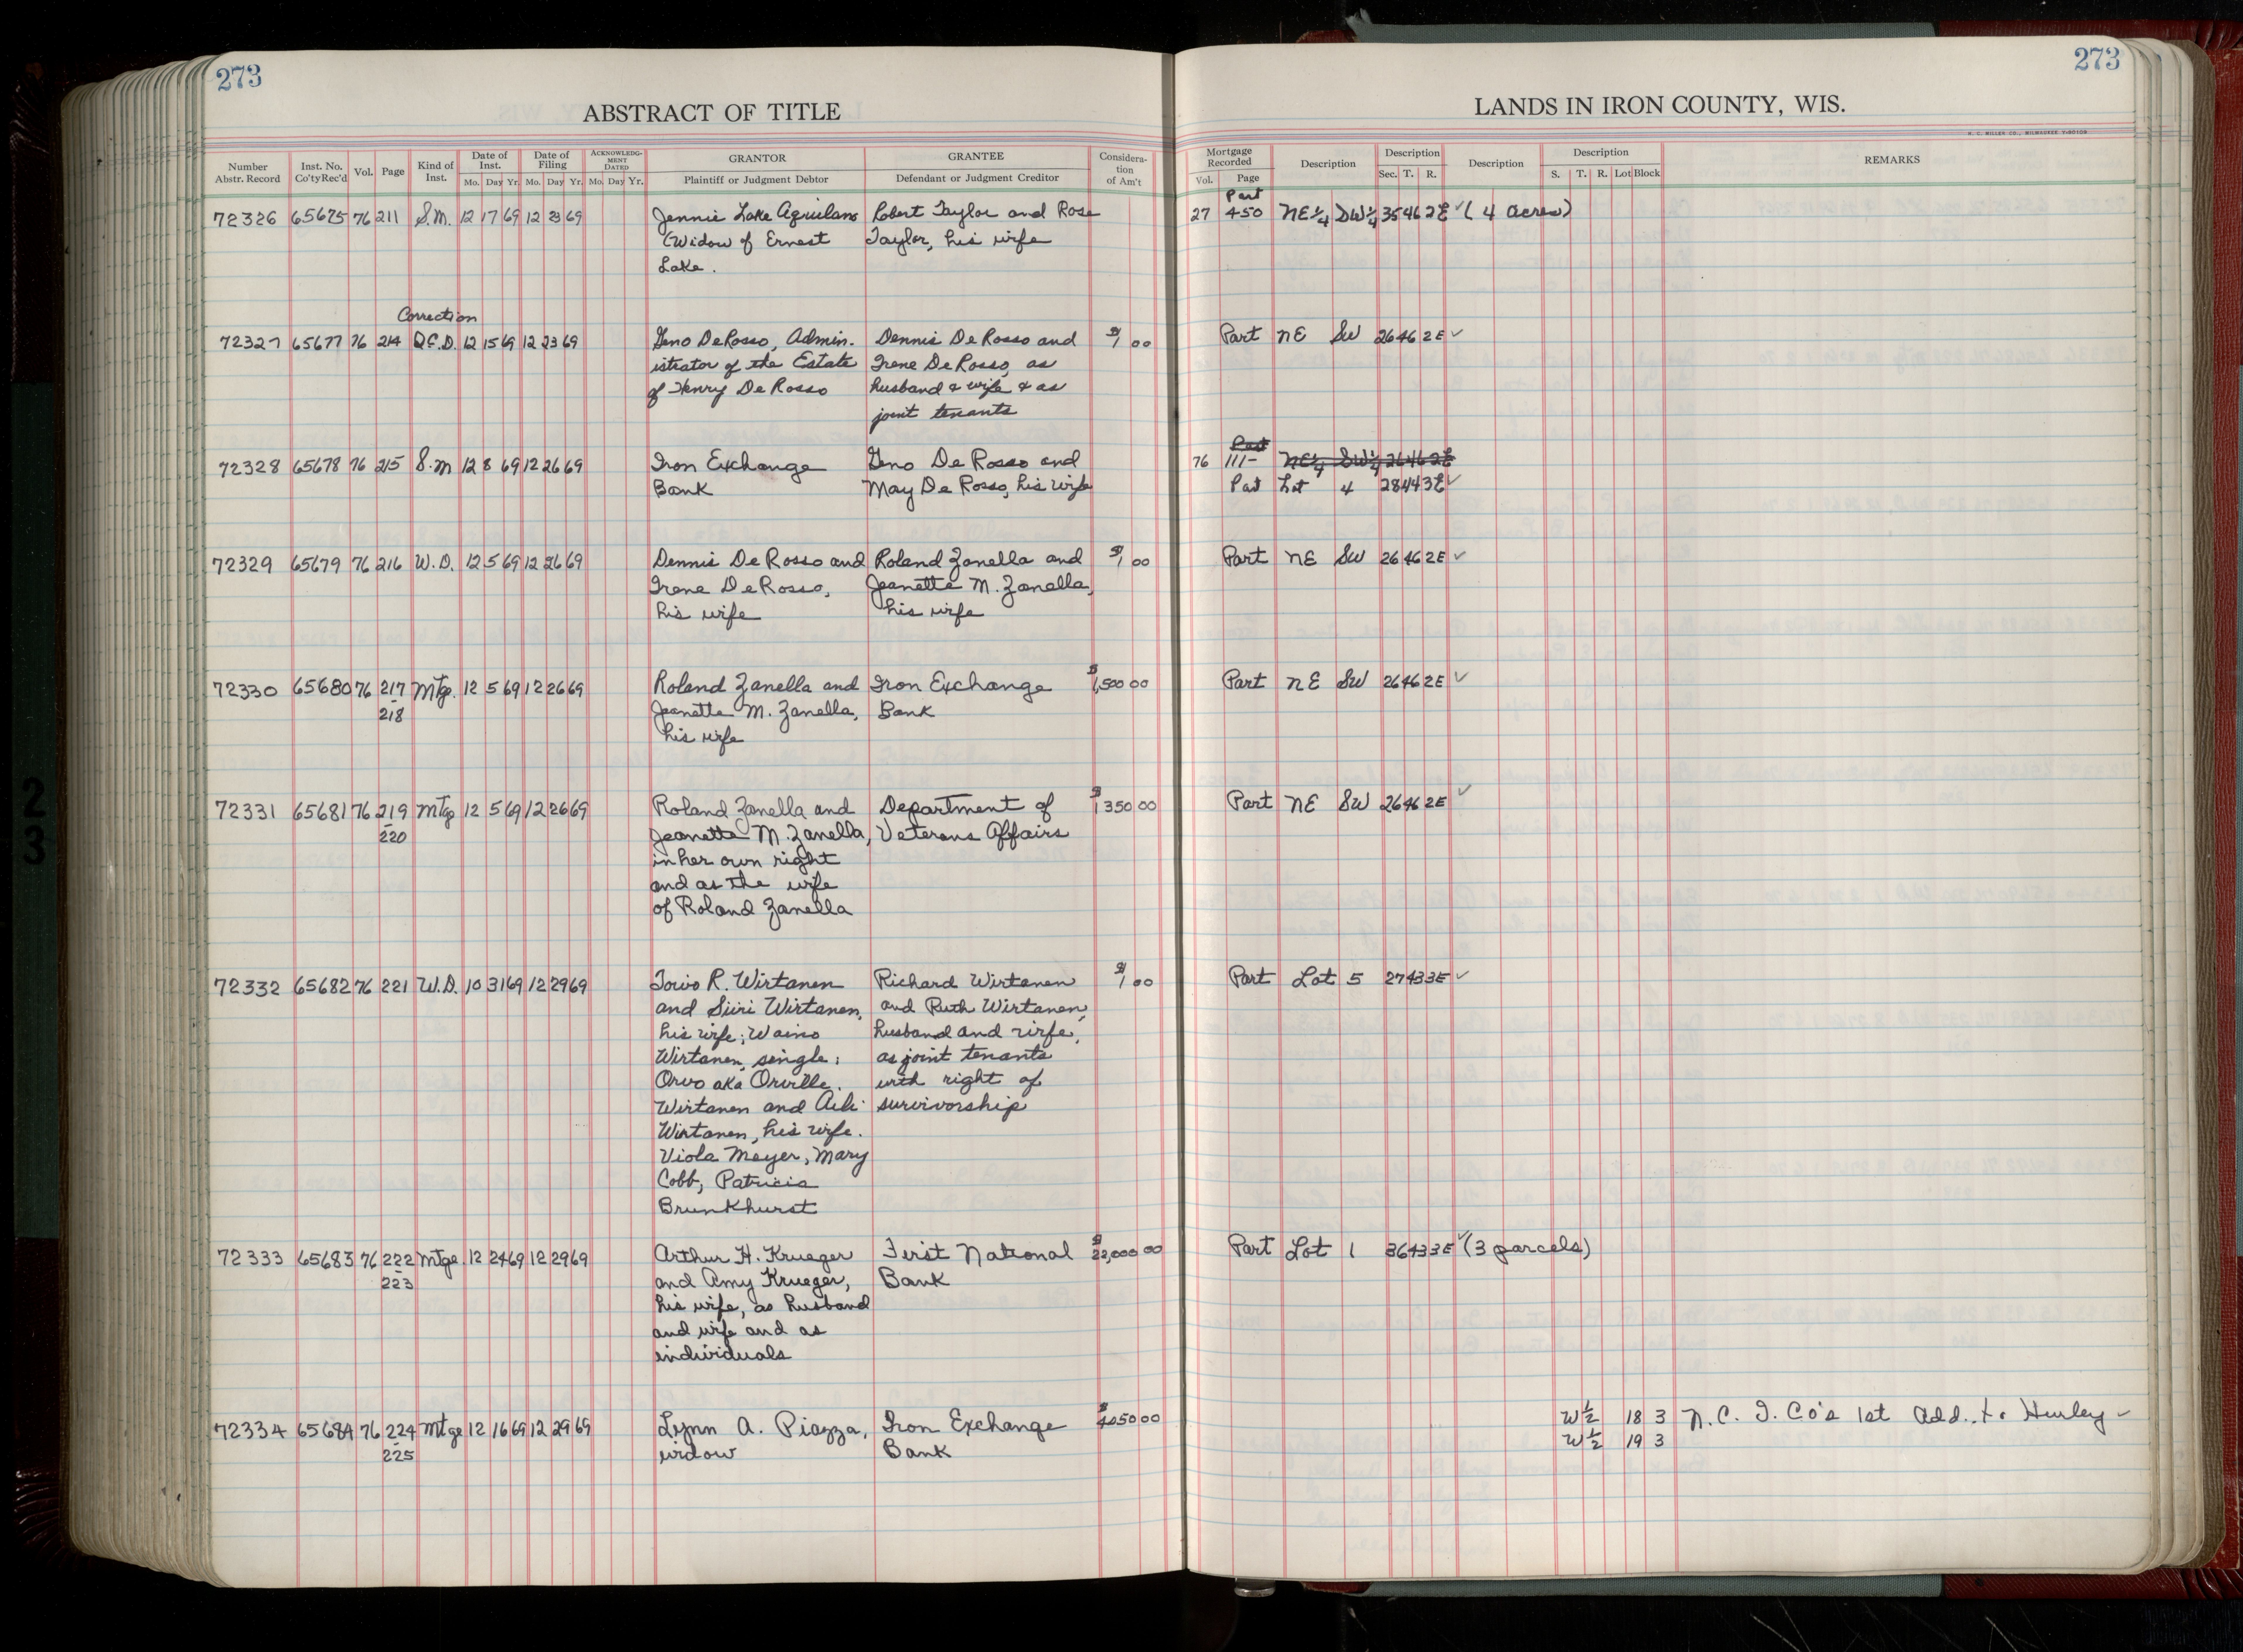 273
273
ABSTRACT OF TITLE
LANDS IN IRON COUNTY, WIS.
H. C. MILLER CO., MILWAUKEE
Number Abstr. Record
Inst. No. Co'ty Rec'd
Vol.
Page
Kind of Inst.
Date of Inst. Mo. Day Yr.
Date of Filing Mo. Day Yr.
ACKNOWLEDG-MENT DATED Mo. Day Yr.
GRANTOR Plaintiff or Judgment Debtor
GRANTEE Defendant or Judgment Creditor
Considera-tion of Am't
Mortgage Recorded Vol. Page
Description
Description Sec. T. R.
Description
Description S. T. R. Lot Block
REMARKS
Part
72326 65675 76 211 S.M. 12 17 69 12 23 69 Jennie Lake Robert Taylor and Rose 27 450 NE¼ SW¼ 35 46 2E ✓ (4 acres)
(Widow of Ernest Taylor, his wife
Lake.
Correction
72327 65677 76 214 Q.C.D. 12 15 69 12 23 69 Geno DeRosso, Admin- Dennis DeRosso and $1 00 Part NE SW 26 46 2E ✓
istrator of the Estate Irene DeRosso, as
of Henry DeRosso husband & wife & as
joint tenants
Part
72328 65678 76 215 S.M 12 8 69 12 26 69 Iron Exchange Geno DeRosso and 76 111- NE¼ SW¼ 26 46 2E
Bank May DeRosso, his wife Part Lot 4 28 44 3E ✓
72329 65679 76 216 W.D. 12 5 69 12 26 69 Dennis DeRosso and Roland Zanella and $1 00 Part NE SW 26 46 2E ✓
Irene DeRosso, Jeanette M. Zanella,
his wife his wife
72330 65680 76 217 Mtg. 12 5 69 12 26 69 Roland Zanella and Iron Exchange $1,500 00 Part NE SW 26 46 2E ✓
- 218 Jeanette M. Zanella, Bank
his wife
72331 65681 76 219 Mtg 12 5 69 12 26 69 Roland Zanella and Department of $1350 00 Part NE SW 26 46 2E ✓
- 220 Jeanette M. Zanella, Veterans Affairs
in her own right
and as the wife
of Roland Zanella
72332 65682 76 221 W.D. 10 31 69 12 29 69 Toivo R. Wirtanen Richard Wirtanen $1 00 Part Lot 5 27 43 3E ✓
and Siiri Wirtanen, and Ruth Wirtanen,
his wife; Waino husband and wife,
Wirtanen, single; as joint tenants
Orvo aka Orville with right of
Wirtanen and Aili survivorship
Wirtanen, his wife.
Viola Meyer, Mary
Cobb, Patricia
Brunkhurst
72333 65683 76 222 Mtge. 12 24 69 12 29 69 Arthur H. Krueger First National $22,000 00 Part Lot 1 36 43 3E ✓ (3 parcels)
- 223 and Amy Krueger, Bank
his wife, as husband
and wife and as
individuals
72334 65684 76 224 Mtge 12 16 69 12 29 69 Lynn A. Piazza, Iron Exchange $4050 00 W½ 18 3 N.C. I. Co's 1st Add. to Hurley ✓
- 225 widow Bank W½ 19 3